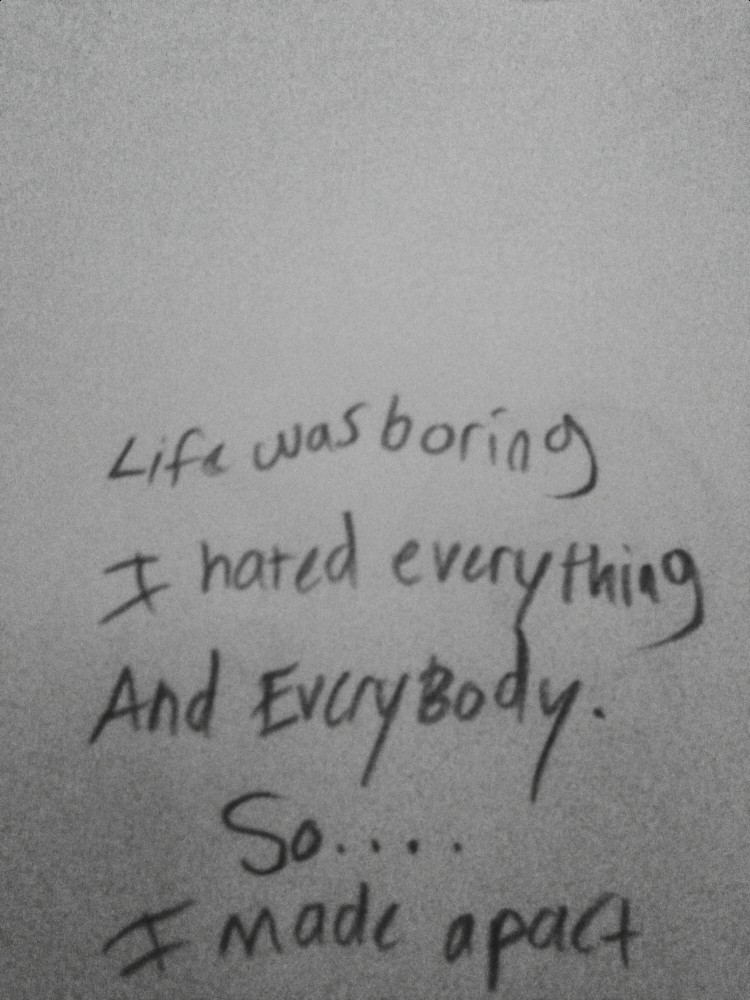 Life was boring
I hated everything
And EveryBody.
So....
I made apact